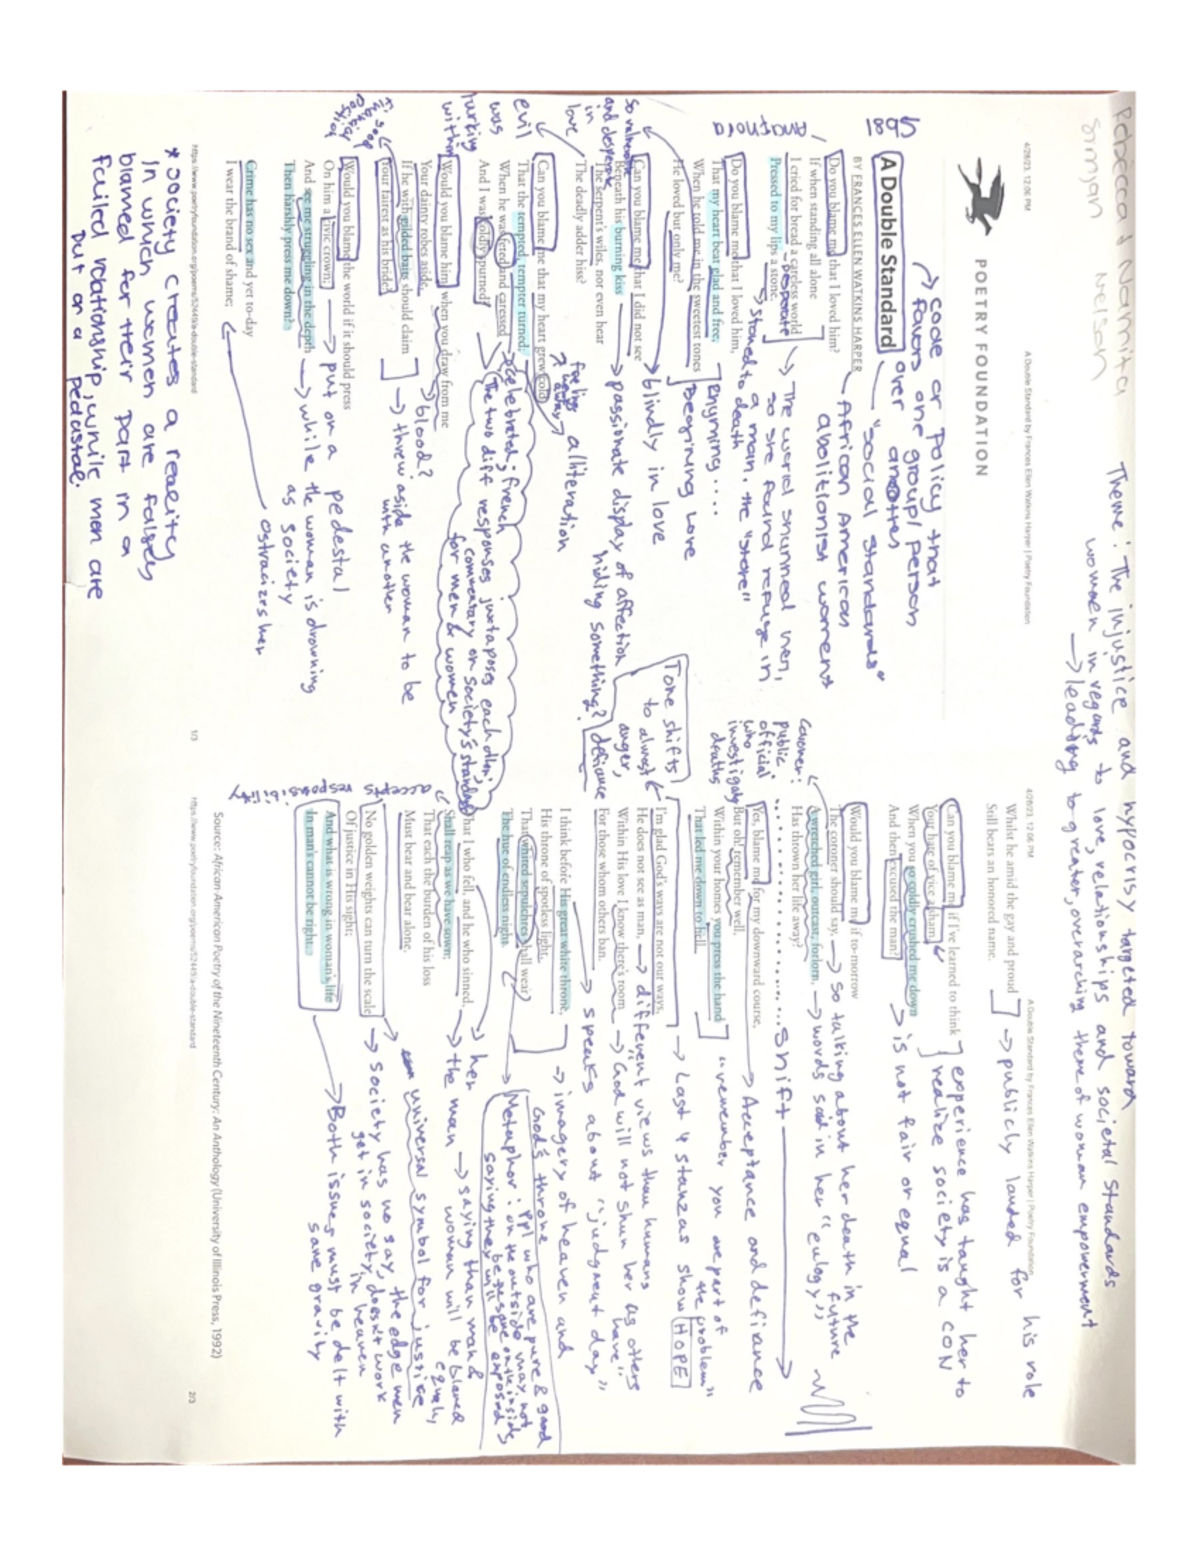 Rebecca & Namrita
Simjan Nelson
Theme: The injustice and hypocrisy targeted toward
women in regards to love, relationships and societal standards
→ leading to greater, overarching theme of woman empowerment
4/28/23, 12:06 PM
A Double Standard by Frances Ellen Watkins Harper | Poetry Foundation
POETRY FOUNDATION
→ code or policy that
favors one group/person
over another
1895
A Double Standard
"social standards"
BY FRANCES ELLEN WATKINS HARPER
African American
abolitionist women
Anaphora
Do you blame me that I loved him?
If when standing all alone
I cried for bread a careless world
Pressed to my lips a stone.
→ The world shunned her,
so she found refuge in
a man. the "stone"
desperate
stoned to death
Do you blame me that I loved him,
That my heart beat glad and free,
When he told me in the sweetest tones
He loved but only me?
Rhyming....
Beginning Love
Can you blame me that I did not see
Beneath his burning kiss
The serpent's wiles, nor even hear
The deadly adder hiss?
so vulnerable
and desperate
in
love
→ blindly in love
→ passionate display of affection
hiding something?
Can you blame me that my heart grew cold
That the tempted, tempter turned;
When he was feted and caressed
And I was coldly spurned?
evil
was
lurking
within
feelings
alliteration
celebrated; french
The two diff responses juxtaposes each other;
commentary on society's standard
for men & women
Would you blame him, when you draw from me
Your dainty robes aside,
If he with gilded baits should claim
Your fairest as his bride?
blood?
→ threw aside the woman to be
with another
Would you blame the world if it should press
On him a civic crown;
And see me struggling in the depth
Then harshly press me down?
→ put on a pedestal
→ while the woman is drowning
as society
ostracizes her
Crime has no sex and yet to-day
I wear the brand of shame;
https://www.poetryfoundation.org/poems/52449/a-double-standard
1/3
* society creates a reality
in which women are falsely
blamed for their part in a
failed relationship, while men are
put on a pedastal.
4/28/23, 12:06 PM
A Double Standard by Frances Ellen Watkins Harper | Poetry Foundation
Whilst he amid the gay and proud
Still bears an honored name.
→ publicly lauded for his role
Can you blame me if I've learned to think
Your hate of vice a sham,
When you so coldly crushed me down
And then excused the man?
experience has taught her to
realize society is a con
→ is not fair or equal
Would you blame me if to-morrow
The coroner should say,
A wretched girl, outcast, forlorn,
Has thrown her life away?
coroner:
public
official
who
investigates
deaths
→ so talking about her death in the
future
→ words said in her "eulogy"
shift
Yes, blame me for my downward course,
But oh! remember well,
Within your homes you press the hand
That led me down to hell.
→ Acceptance and defiance
"remember you are part of
the problem"
Tone shifts
to almost
anger,
defiance
→ Last 4 stanzas show HOPE
I'm glad God's ways are not our ways,
He does not see as man,
Within His love I know there's room
For those whom others ban.
→ different views than humans
→ God will not shun her as others
have"
→ speaks about "judgment day"
I think before His great white throne,
His throne of spotless light,
That whited sepulchres shall wear
The hue of endless night.
→ imagery of heaven and
God's throne
Metaphor: ppl who are pure & good
on the outside may not
be the same on the inside
saying they will be exposed
That I who fell, and he who sinned,
Shall reap as we have sown;
That each the burden of his loss
Must bear and bear alone.
accepts responsibility
her
→ the man → saying that man &
woman will be blamed
equally
No golden weights can turn the scale
Of justice in His sight;
And what is wrong in woman's life
In man's cannot be right.
universal symbol for justice
→ society has no say, the edge men
get in society, doesn't work
in heaven
→ Both issues must be delt with
same gravity
Source: African American Poetry of the Nineteenth Century: An Anthology (University of Illinois Press, 1992)
https://www.poetryfoundation.org/poems/52449/a-double-standard
2/3